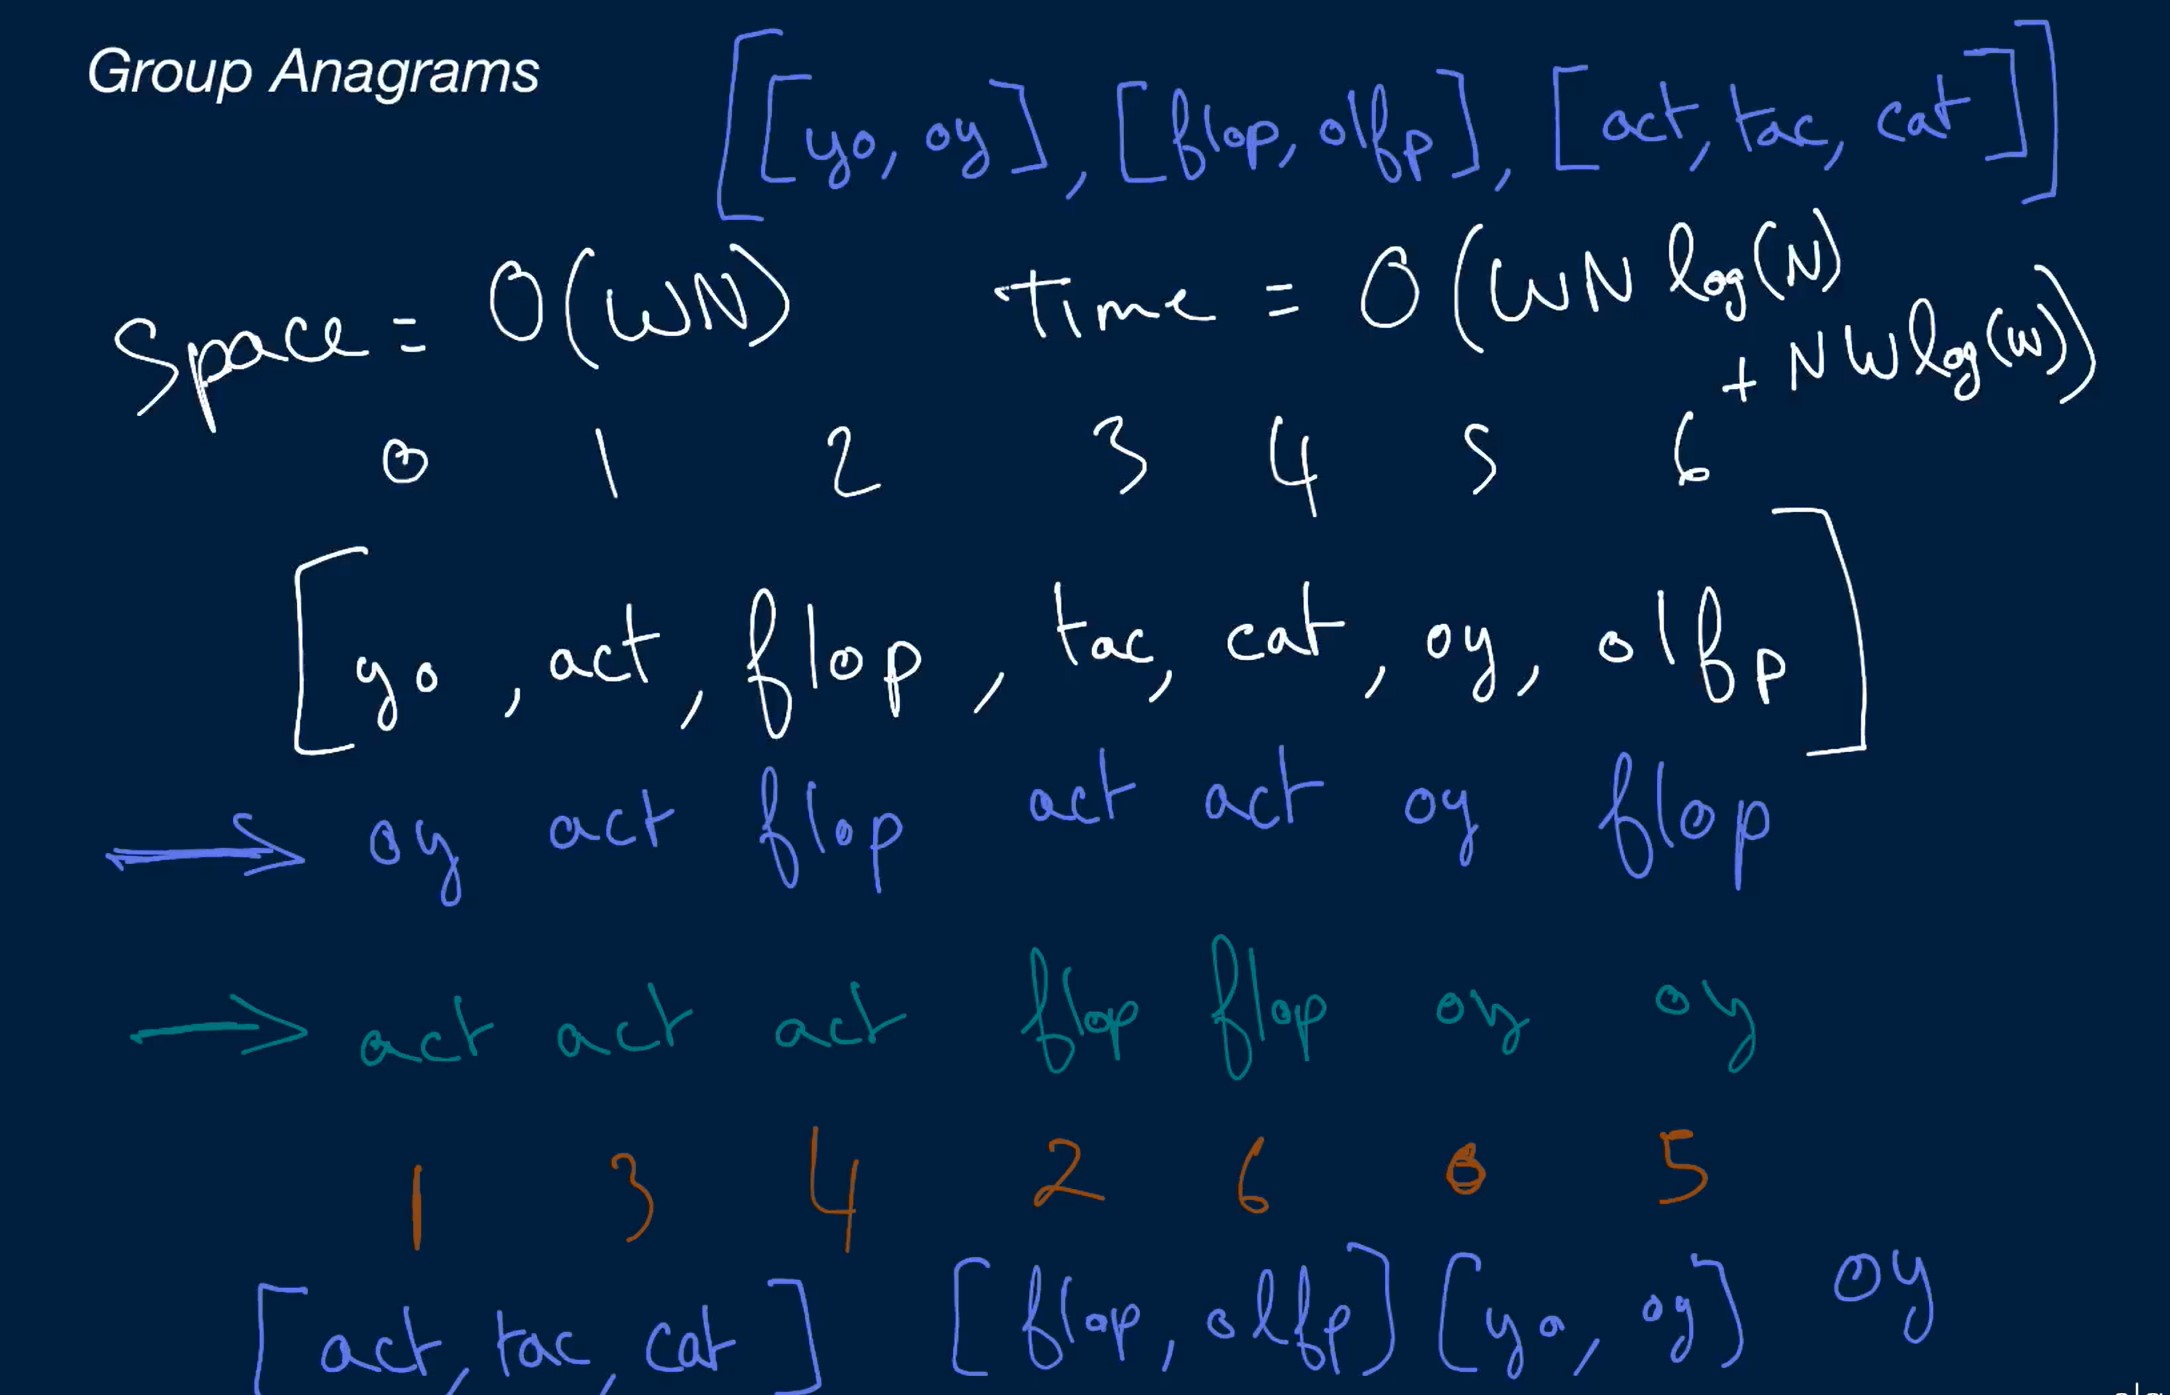 Group Anagrams
[[yo, oy], [flop, olfp], [act, tac, cat]]
Space = O(WN) Time = O(WN log(N)
+ NW log(W))
0 1 2 3 4 5 6
[yo, act, flop, tac, cat, oy, olfp]
oy act flop act act oy flop
act act act flop flop oy oy
1 3 4 2 6 0 5
[act, tac, cat] [flop, olfp] [yo, oy] oy